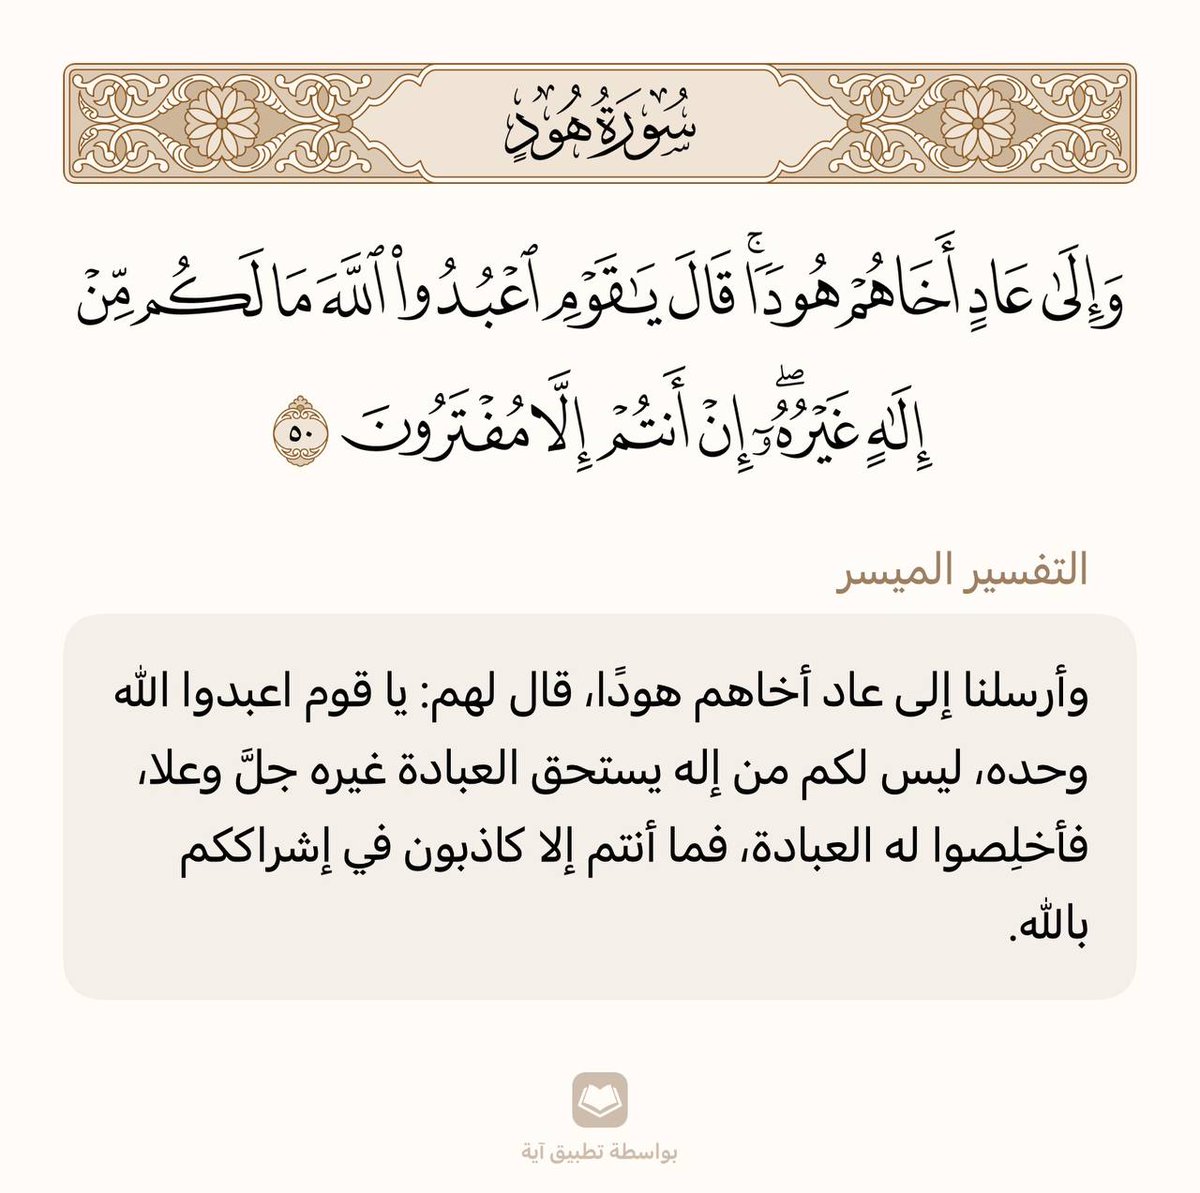 سُورَةُ هُودٍ
وَإِلَىٰ عَادٍ أَخَاهُمۡ هُودٗاۚ قَالَ يَٰقَوۡمِ ٱعۡبُدُواْ ٱللَّهَ مَا لَكُم مِّنۡ
إِلَٰهٍ غَيۡرُهُۥٓۖ إِنۡ أَنتُمۡ إِلَّا مُفۡتَرُونَ ٥٠
التفسير الميسر
وأرسلنا إلى عاد أخاهم هودًا، قال لهم: يا قوم اعبدوا الله
وحده، ليس لكم من إله يستحق العبادة غيره جلَّ وعلا،
فأخلِصوا له العبادة، فما أنتم إلا كاذبون في إشراككم
بالله.
بواسطة تطبيق آية